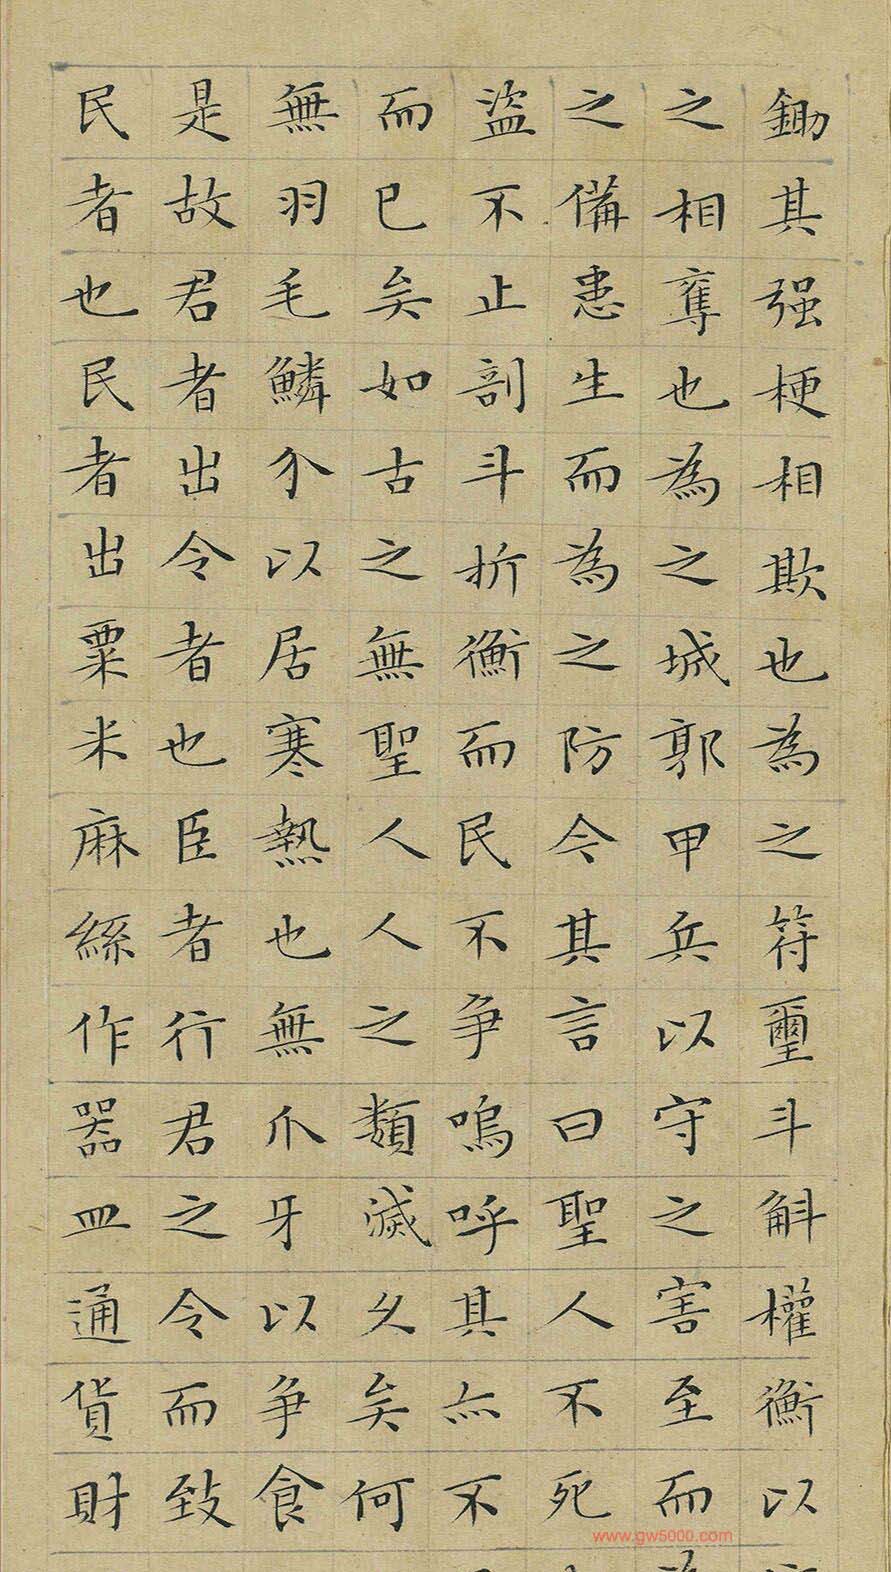 鋤其强梗相欺也為之符璽斗斛權衡以
之相奪也為之城郭甲兵以守之害至而
之備患生而為之防今其言曰聖人不死
盜不止剖斗折衡而民不争嗚呼其亦不
而已矣如古之無聖人人之類滅久矣何
無羽毛鱗介以居寒熱也無爪牙以争食
是故君者出令者也臣者行君之令而致
民者也民者出粟米麻絲作器皿通貨財
www.gw5000.com